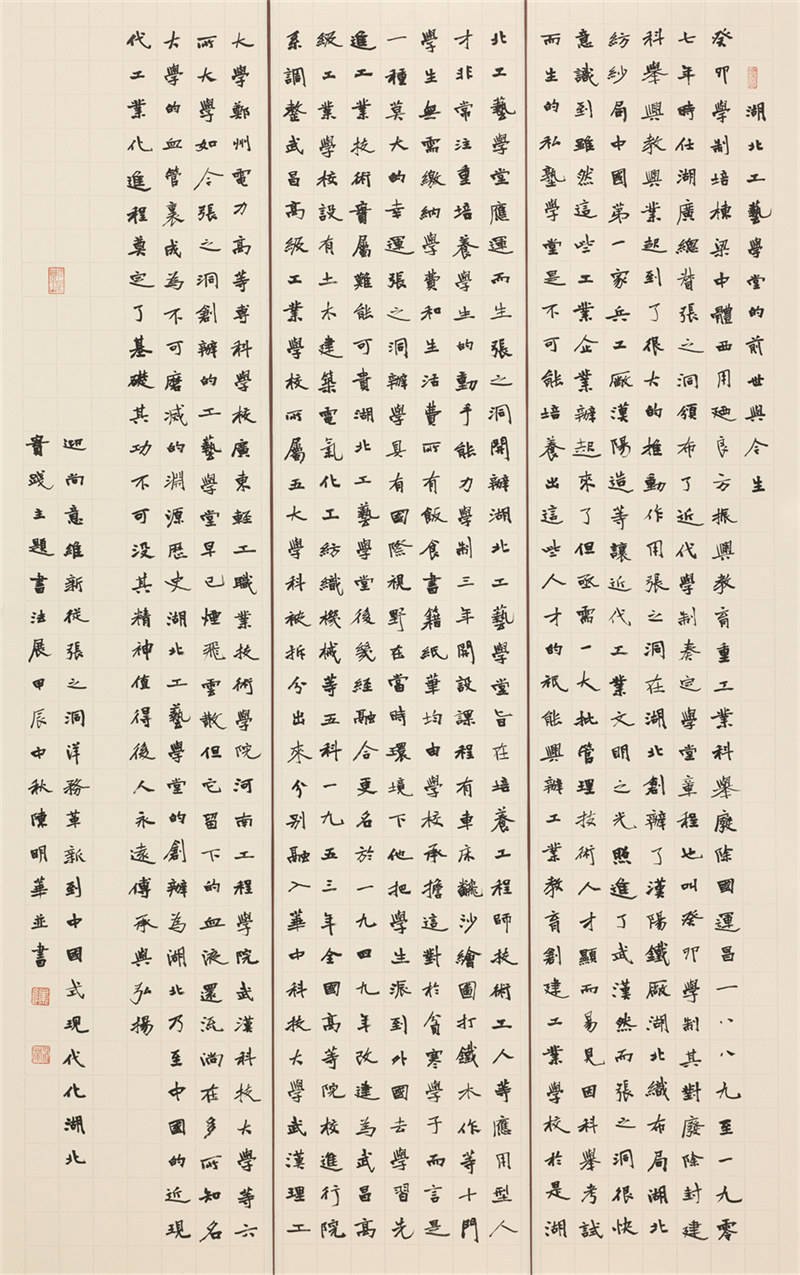 湖北工藝學堂的前世與今生
癸卯學制培棟梁中體西用廻良方振興教育重工業科舉廢除國運昌一八八九至一九零
七年時仕湖廣總督張之洞領布了近代學制奏定學堂章程也叫癸卯學制其對廢除封建
科舉興教興業起到了很大的推動作用張之洞在湖北創辦了漢陽鐵厰湖北織布局湖北
紡紗局中國第一家兵工厰漢陽造等讓近代工業文明之光照進了武漢然而張之洞很快
意識到雖然這些工業企業辦起來了但亟需一大批管理技術人才顯而易見因科舉考試
而生的私塾學堂是不可能培養出這些人才的祇能興辦工業教育創建工業學校於是湖
北工藝學堂應運而生張之洞開辦湖北工藝學堂旨在培養工程師技術工人等應用型人
才非常注重培養學生的動手能力學制三年開設課程有車床翻沙繪圖打鐵木作等十門
學生無需繳納學費和生活費所有飯食書籍紙筆均由學校承擔這對於貧寒學子而言是
一種莫大的幸運張之洞辦學具有國際視野在當時環境下他把學生派到外國去學習先
進工業技術實屬難能可貴湖北工藝學堂後幾經融合更名於一九四九年改建為武昌高
級工業學校設有土木建築電氣化工紡織機械等五科一九五三年全國高等院校進行院
系調整武昌高級工業學校所屬五大學科被拆分出來分別融入華中科技大學武漢理工
大學鄭州電力高等專科學校廣東輕工職業技術學院河南工程學院武漢科技大學等六
所大學如今張之洞創辦的工藝學堂早已煙飛雲散但它留下的血液還流淌在多所知名
大學的血管裏成為不可磨滅的淵源歷史湖北工藝學堂的創辦為湖北乃至中國的近現
代工業化進程奠定了基礎其功不可没其精神值得後人永遠傳承與弘揚
迎尚意維新從張之洞洋務革新到中國式現代化湖北
實踐主題書法展甲辰中秋陳明華並書